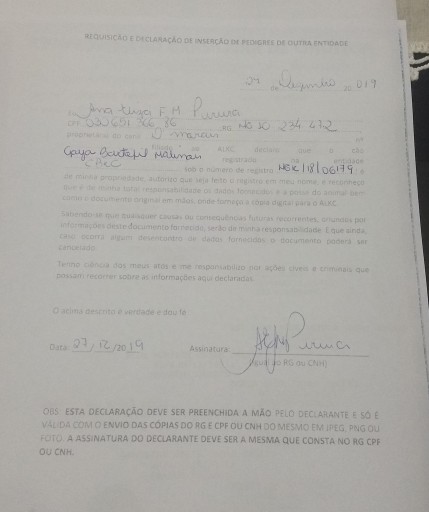 REQUISIÇÃO E DECLARAÇÃO DE INSERÇÃO DE PEDIGREE DE OUTRA ENTIDADE
27 de Dezembro 2019
Eu, Ana F. M
CPF RG MG 10 234 472
proprietário do canil
filiado ao ALKC, declaro que o cão
Gaya registrado na entidade
CBKC sob o número de registro MGK/18/06179, é
de minha propriedade, autorizo que seja feito o registro em meu nome, e reconheço
que é de minha total responsabilidade os dados fornecidos e a posse do animal bem
como o documento original em mãos, onde forneço a cópia digital para o ALKC.
Sabendo-se que quaisquer causas ou consequências futuras recorrentes, oriundos por
informações deste documento fornecido, serão de minha responsabilidade. E que ainda,
caso ocorra algum desencontro de dados fornecidos o documento poderá ser
cancelado.
Tenho ciência dos meus atos e me responsabilizo por ações cíveis e criminais que
possam recorrer sobre as informações aqui declaradas.
O acima descrito é verdade e dou fé.
Data: 27/12/2019 Assinatura:
(igual ao RG ou CNH)
OBS: ESTA DECLARAÇÃO DEVE SER PREENCHIDA A MÃO PELO DECLARANTE E SÓ É
VÁLIDA COM O ENVIO DAS CÓPIAS DO RG E CPF OU CNH DO MESMO EM JPEG, PNG OU
FOTO. A ASSINATURA DO DECLARANTE DEVE SER A MESMA QUE CONSTA NO RG CPF
OU CNH.